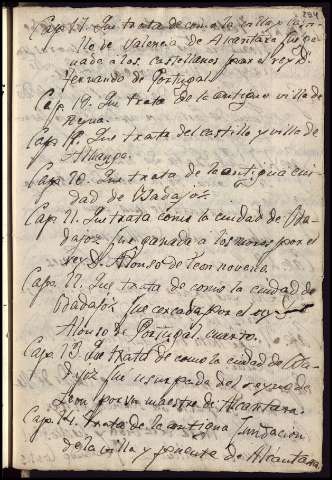 294
Cap. 17. Que trata de como la villa y casti-
llo de Valencia de Alcantara fue ga-
nada a los castellanos por el rey D.
fernando de Portugal.
Cap. 18. Que trata de la antigua villa de
Cap. 19. Que trata del castillo y villa de
Alhange.
Cap. 20. Que trata de la antigua ciu-
dad de Badajoz.
Cap. 21. Que trata como la ciudad de Ba-
dajoz fue ganada a los moros por el
rey D. Alonso de Leon noveno.
Cap. 22. Que trata de como la ciudad de
Badajoz fue cercada por el rey
Alonso de Portugal, cuarto.
Cap. 23. Que trata de como la ciudad de Ba-
dajoz fue usurpada del reyno de
Leon por un maestre de Alcantara.
Cap. 24. trata de la antigua fundacion
de la villa y puente de Alcantara.